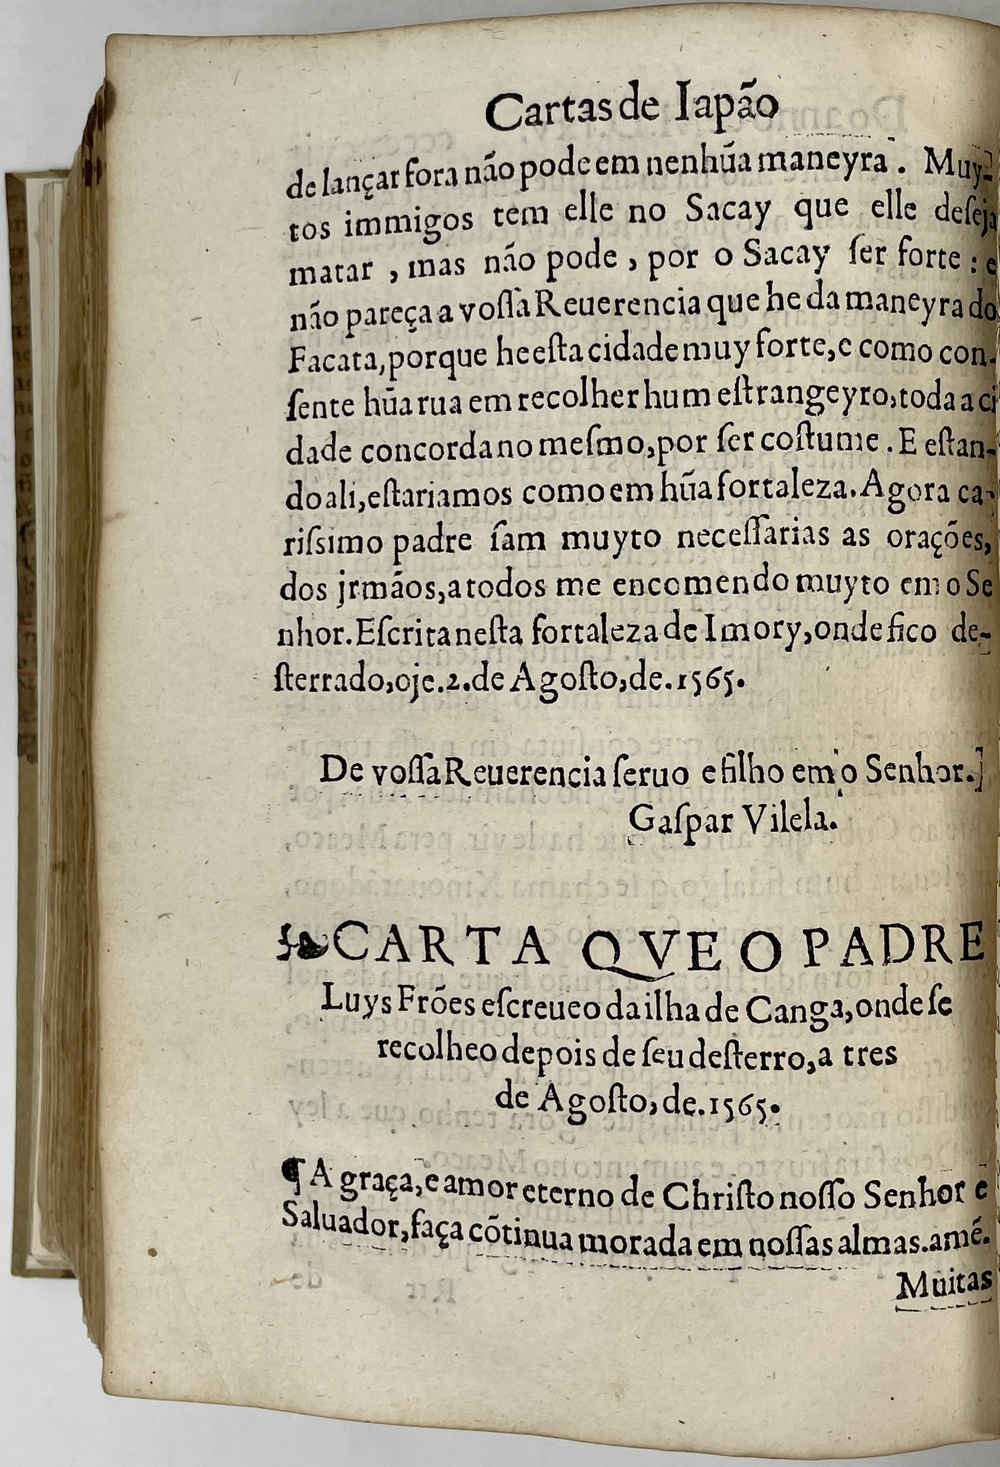 Cartas de Iapão
de lançar fora não pode em nenhũa maneyra. Muy-
tos immigos tem elle no Sacay que elle deſeja
matar, mas não pode, por o Sacay ſer forte: e
não pareça a voſſa Reuerencia que he da maneyra do
Facata, porque he eſta cidade muy forte, e como con-
ſente hũa rua em recolher hum eſtrangeyro, toda a ci
dade concorda no meſmo, por ſer coſtume. E eſtan-
do ali, eſtariamos como em hũa fortaleza. Agora ca-
riſsimo padre ſam muyto neceſſarias as orações,
dos jrmãos, a todos me encomendo muyto em o Se
nhor. Eſcrita neſta fortaleza de Imory, onde fico de-
ſterrado, oje. 2. de Agoſto, de. 1565.
De voſſa Reuerencia ſeruo e filho em o Senhor.
Gaſpar Vilela.
CARTA QVE O PADRE
Luys Frões eſcreueo da ilha de Canga, onde ſe
recolheo depois de ſeu deſterro, a tres
de Agoſto, de. 1565.
¶ A graça, e amor eterno de Chriſto noſſo Senhor e
Saluador, faça cõtinua morada em noſſas almas. amẽ.
Muitas